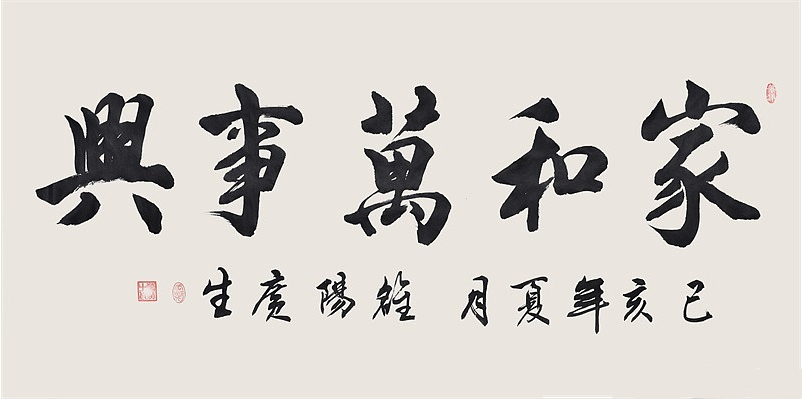 家和萬事興
己亥年夏月 雒陽廣生